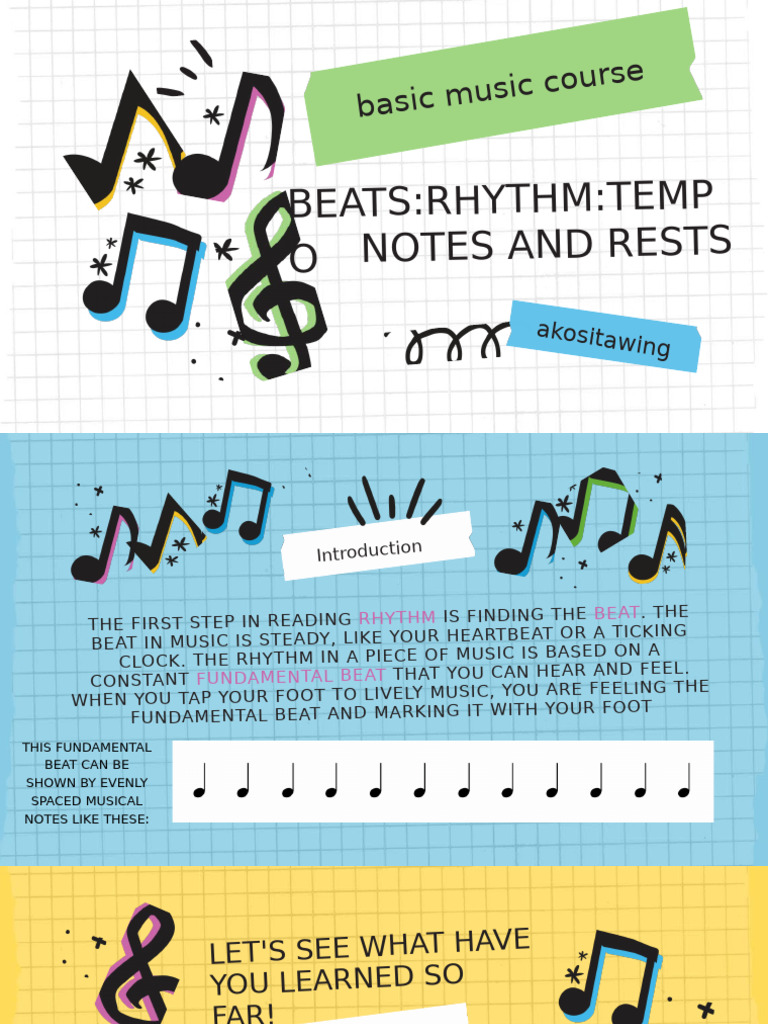 basic music course
BEATS:RHYTHM:TEMP
O NOTES AND RESTS
akositawing
Introduction
THE FIRST STEP IN READING RHYTHM IS FINDING THE BEAT. THE
BEAT IN MUSIC IS STEADY, LIKE YOUR HEARTBEAT OR A TICKING
CLOCK. THE RHYTHM IN A PIECE OF MUSIC IS BASED ON A
CONSTANT FUNDAMENTAL BEAT THAT YOU CAN HEAR AND FEEL.
WHEN YOU TAP YOUR FOOT TO LIVELY MUSIC, YOU ARE FEELING THE
FUNDAMENTAL BEAT AND MARKING IT WITH YOUR FOOT
THIS FUNDAMENTAL
BEAT CAN BE
SHOWN BY EVENLY
SPACED MUSICAL
NOTES LIKE THESE:
LET'S SEE WHAT HAVE
YOU LEARNED SO
FAR!